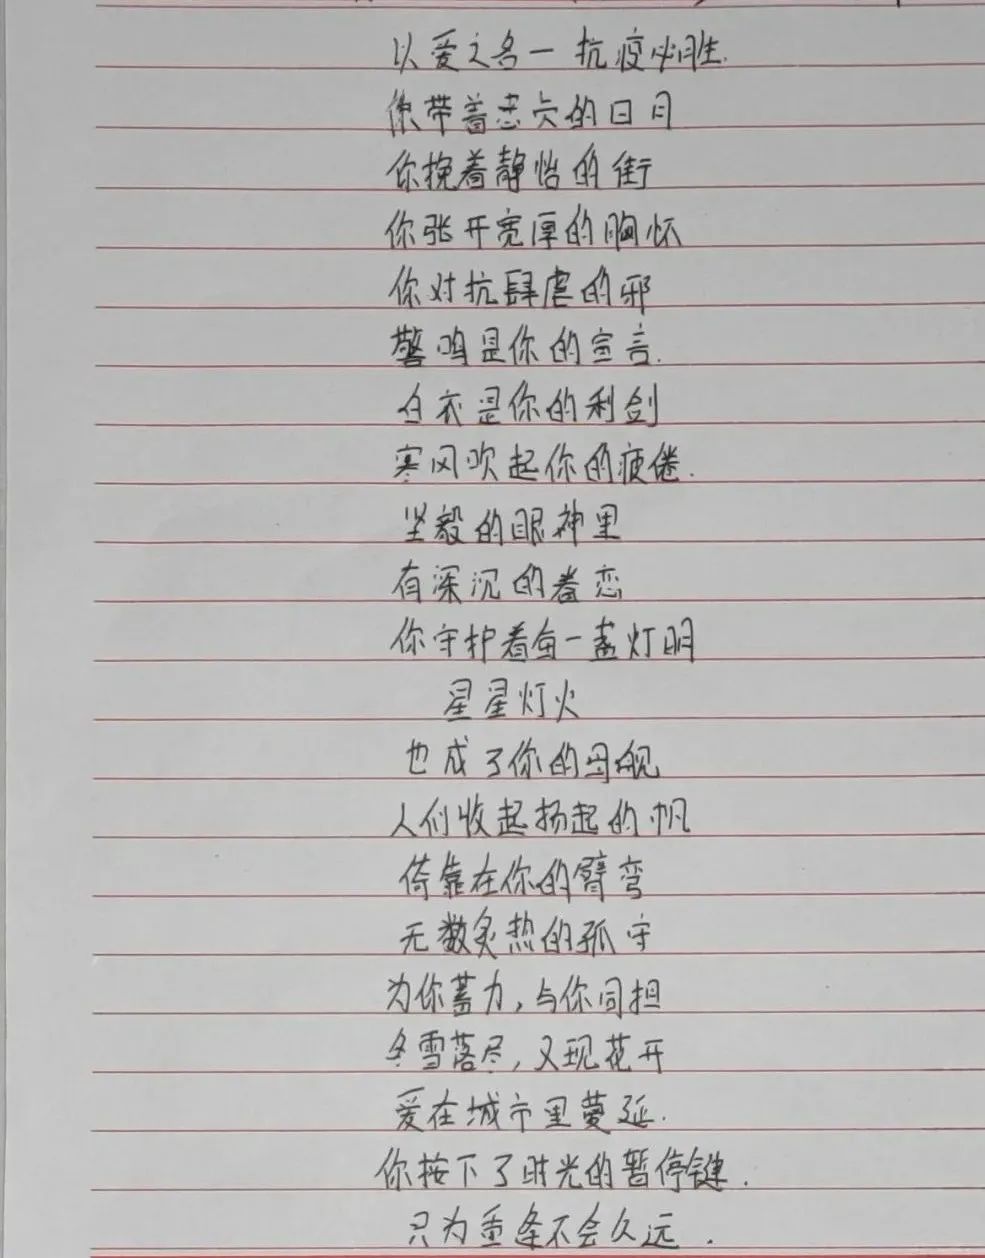 以爱之名一抗疫必胜.
你带着忐忑的日月
你挽着静怡的街
你张开宽厚的胸怀
你对抗肆虐的邪
警鸣是你的宣言.
白衣是你的利剑
寒风吹起你的疲倦.
坚毅的眼神里
有深沉的眷恋
你守护着每一盏灯明
星星灯火
也成了你的母舰
人们收起扬起的帆
倚靠在你的臂弯
无数炙热的孤守
为你蓄力,与你同担
冬雪落尽,又现花开
爱在城市里蔓延.
你按下了时光的暂停键.
只为重逢不会久远.